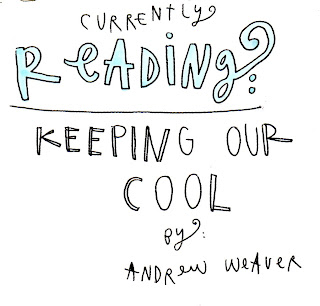 CURRENTLY
READING:
KEEPING OUR
COOL
By:
ANDREW WEAVER